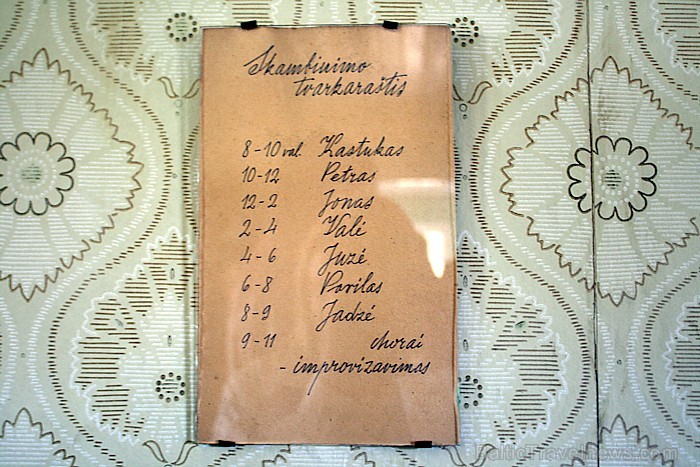 Skambinimo
tvarkaraštis
8-10 val. Kastukas
10-12 Petras
12-2 Jonas
2-4 Valė
4-6 Juzė
6-8 Povilas
8-9 Jadzė
9-11 chorai
- improvizavimas
BalticTravelnews.com